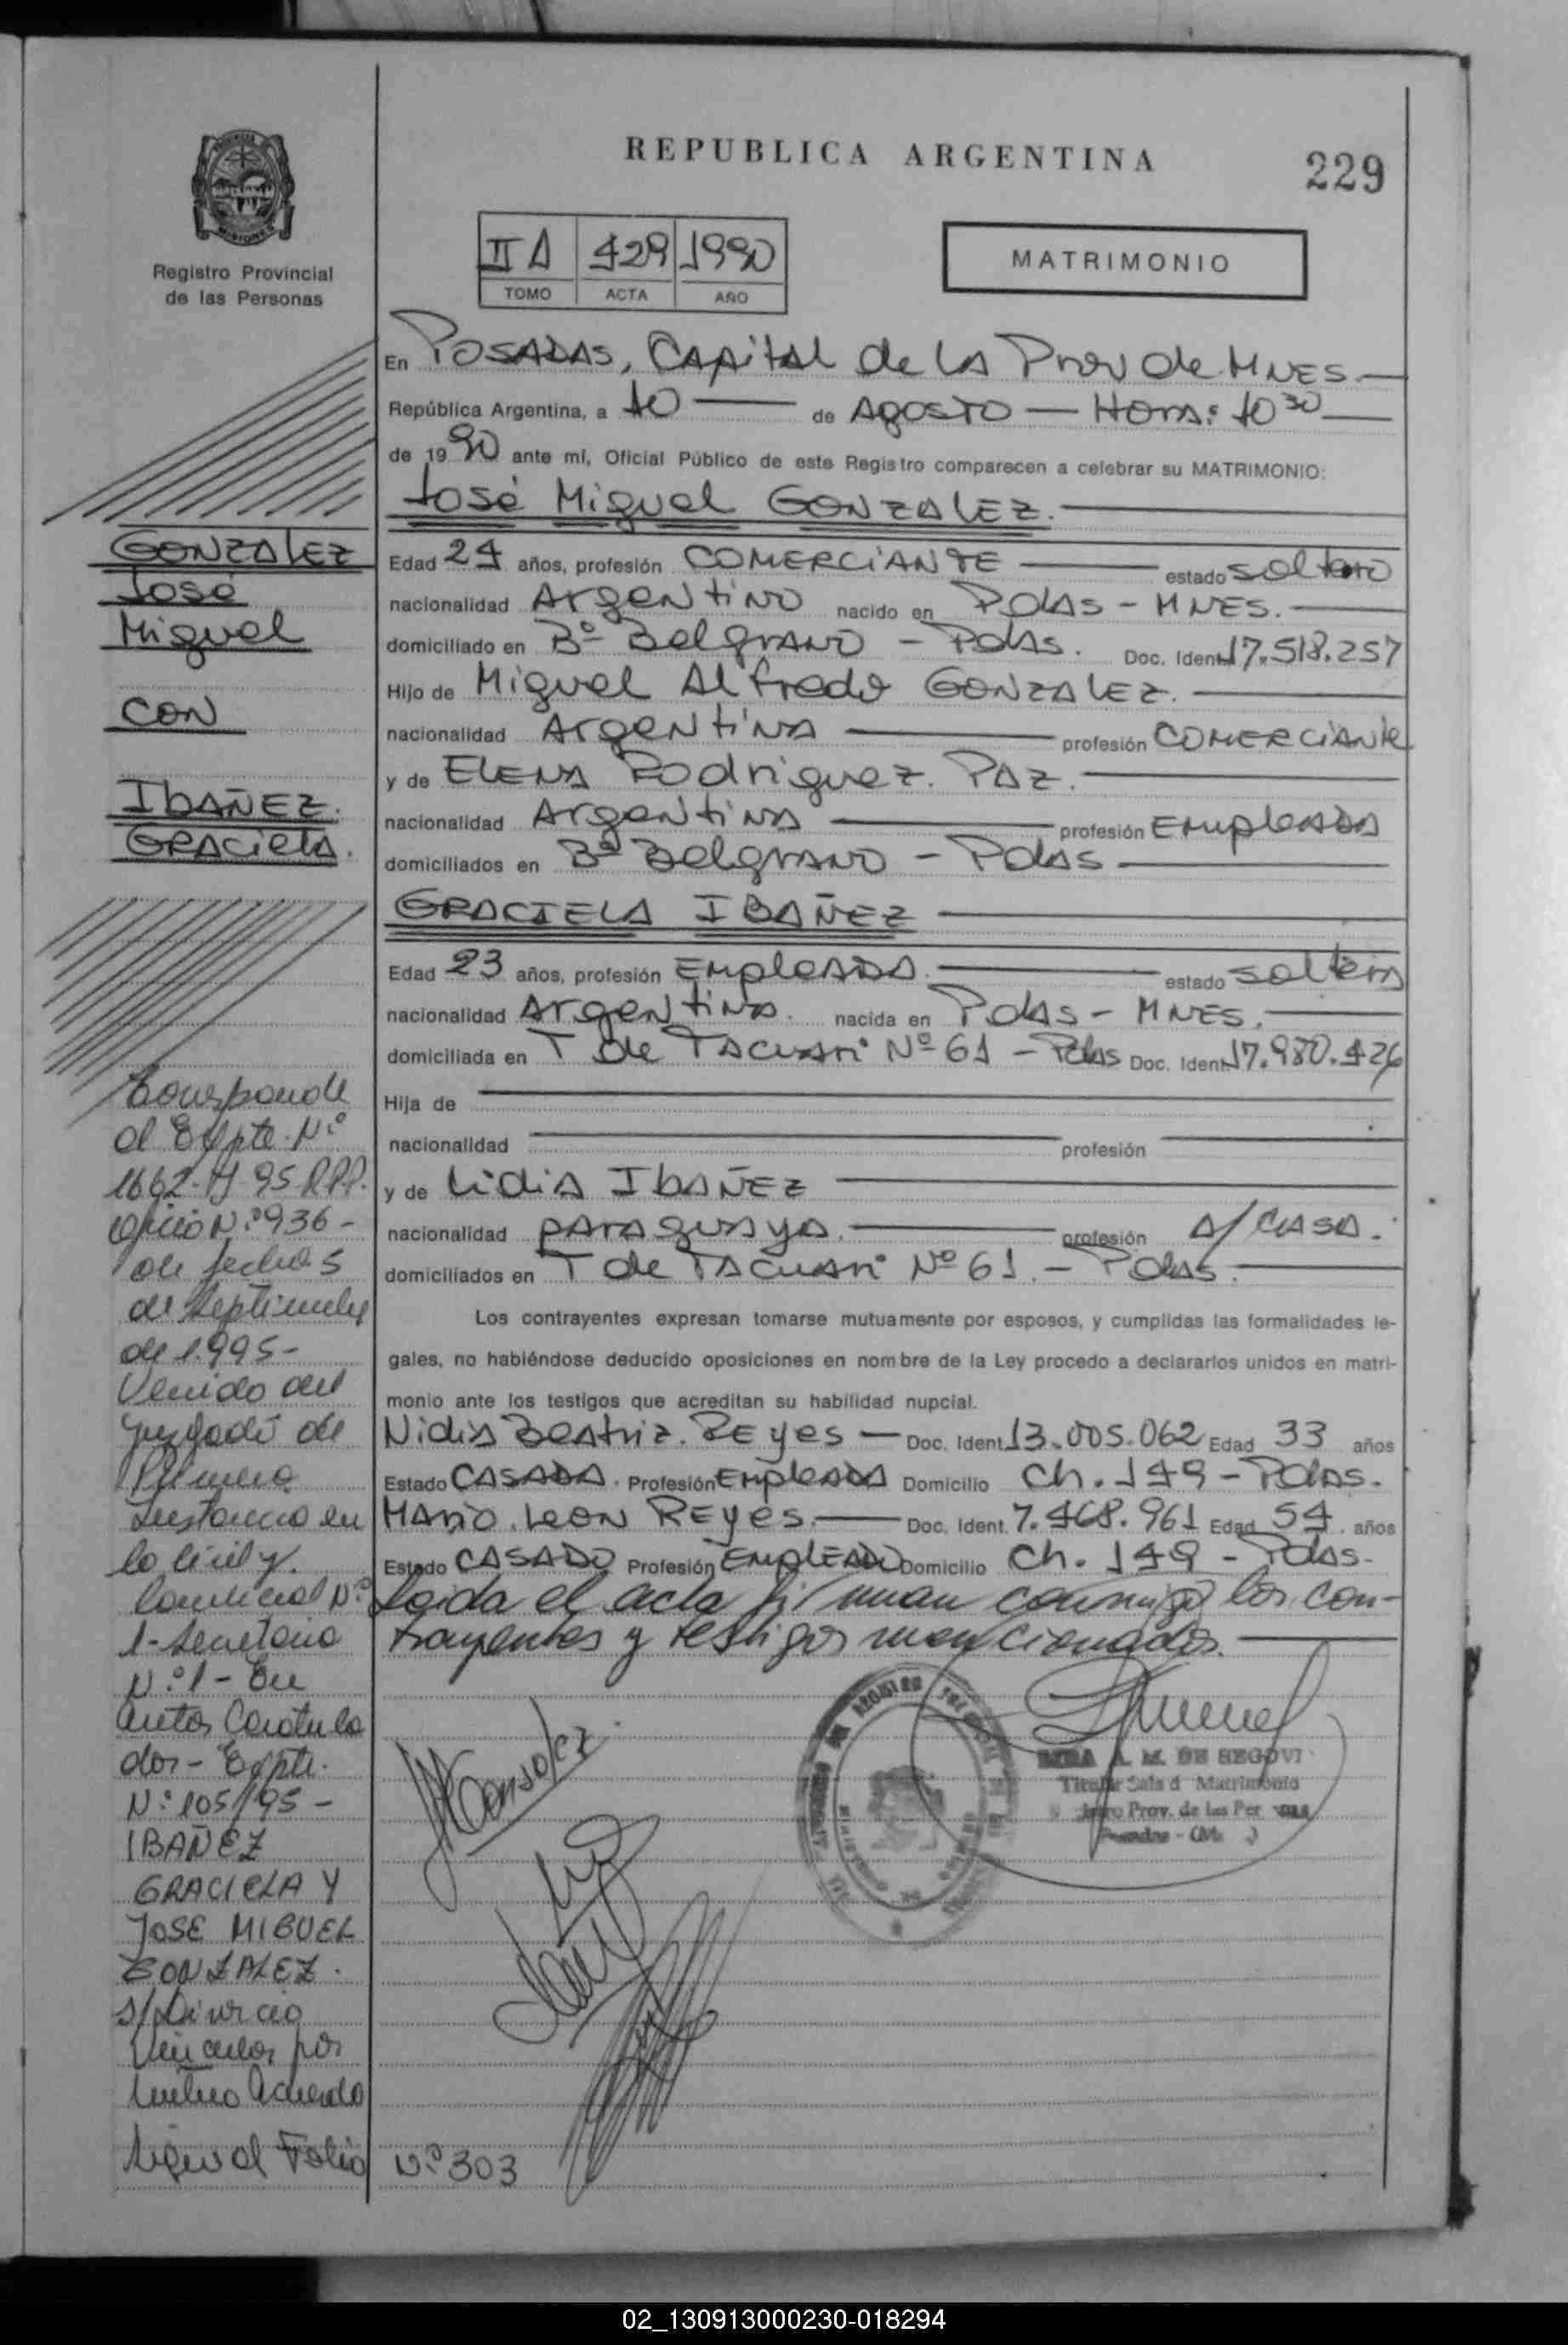 REPUBLICA ARGENTINA
229
Registro Provincial
de las Personas
II A 429 1990
TOMO ACTA AÑO
MATRIMONIO
En POSADAS, CAPitAL de LA Prov de MNES.
República Argentina, a 10 de AgOSTO - HORA: 10 30
de 19 90 ante mí, Oficial Público de este Registro comparecen a celebrar su MATRIMONIO:
José Miguel GONZALEZ.
Edad 24 años, profesión COMERCIANTE estado soltero
nacionalidad Argentino nacido en Pdas - MNES.
domiciliado en Bº Belgrano - Pdas. Doc. Ident. 17.518.257
Hijo de Miguel Alfredo GONZALEZ.
nacionalidad Argentina profesión COMERCIANte
y de ELENA Rodriguez. PAZ.
nacionalidad Argentina profesión EmpleADA
domiciliados en Bº Belgrano - Pdas
GRACIELA IBAÑEZ
Edad 23 años, profesión EmpleADA. estado soltera
nacionalidad Argentina. nacida en Pdas - MNES.
domiciliada en T de TACUARi Nº 61 - Pdas Doc. Ident. 17.980.426
Hija de
nacionalidad profesión
y de Lidia IbAÑEZ
nacionalidad paraguaya. profesión A/CASA.
domiciliados en T de TACUARi Nº 61. - Pdas.
Los contrayentes expresan tomarse mutuamente por esposos, y cumplidas las formalidades le-
gales, no habiéndose deducido oposiciones en nombre de la Ley procedo a declararlos unidos en matri-
monio ante los testigos que acreditan su habilidad nupcial.
Nidia Beatriz. REyes - Doc. Ident. 13.005.062 Edad 33 años
Estado CASADA. Profesión EmpleADA Domicilio Ch. 149 - Pdas.
Mario. Leon REyes. Doc. Ident. 7.468.961 Edad 54 años
Estado CASADO Profesión EMPLEADO Domicilio Ch. 149 - Pdas.
Leida el acta firman conmigo los con-
trayentes y testigos mencionados.
A. M. DE SEGOVI
Titular Sala d Matrimonio
Prov. de las Per
GONZALEZ
José
Miguel
CON
IbAÑEZ.
GRACiela.
Corresponde
al Expte. Nº
1662-95-R.P.P.
Oficio Nº 936 -
de fecha 5
de Septiembre
de 1.995-
Venido del
Juzgado de
Primera
Instancia en
lo Civil y
Comercial Nº
1-Secretaria
Nº 1 - En
autos Caratula
dos - Expte.
Nº 105/95 -
IBAÑEZ
GRACIELA Y
JOSE MIGUEL
GONZALEZ.
s/Divorcio
Vincular por
Mutuo Acuerdo
Sigue al Folio Nº 303
02_130913000230-018294